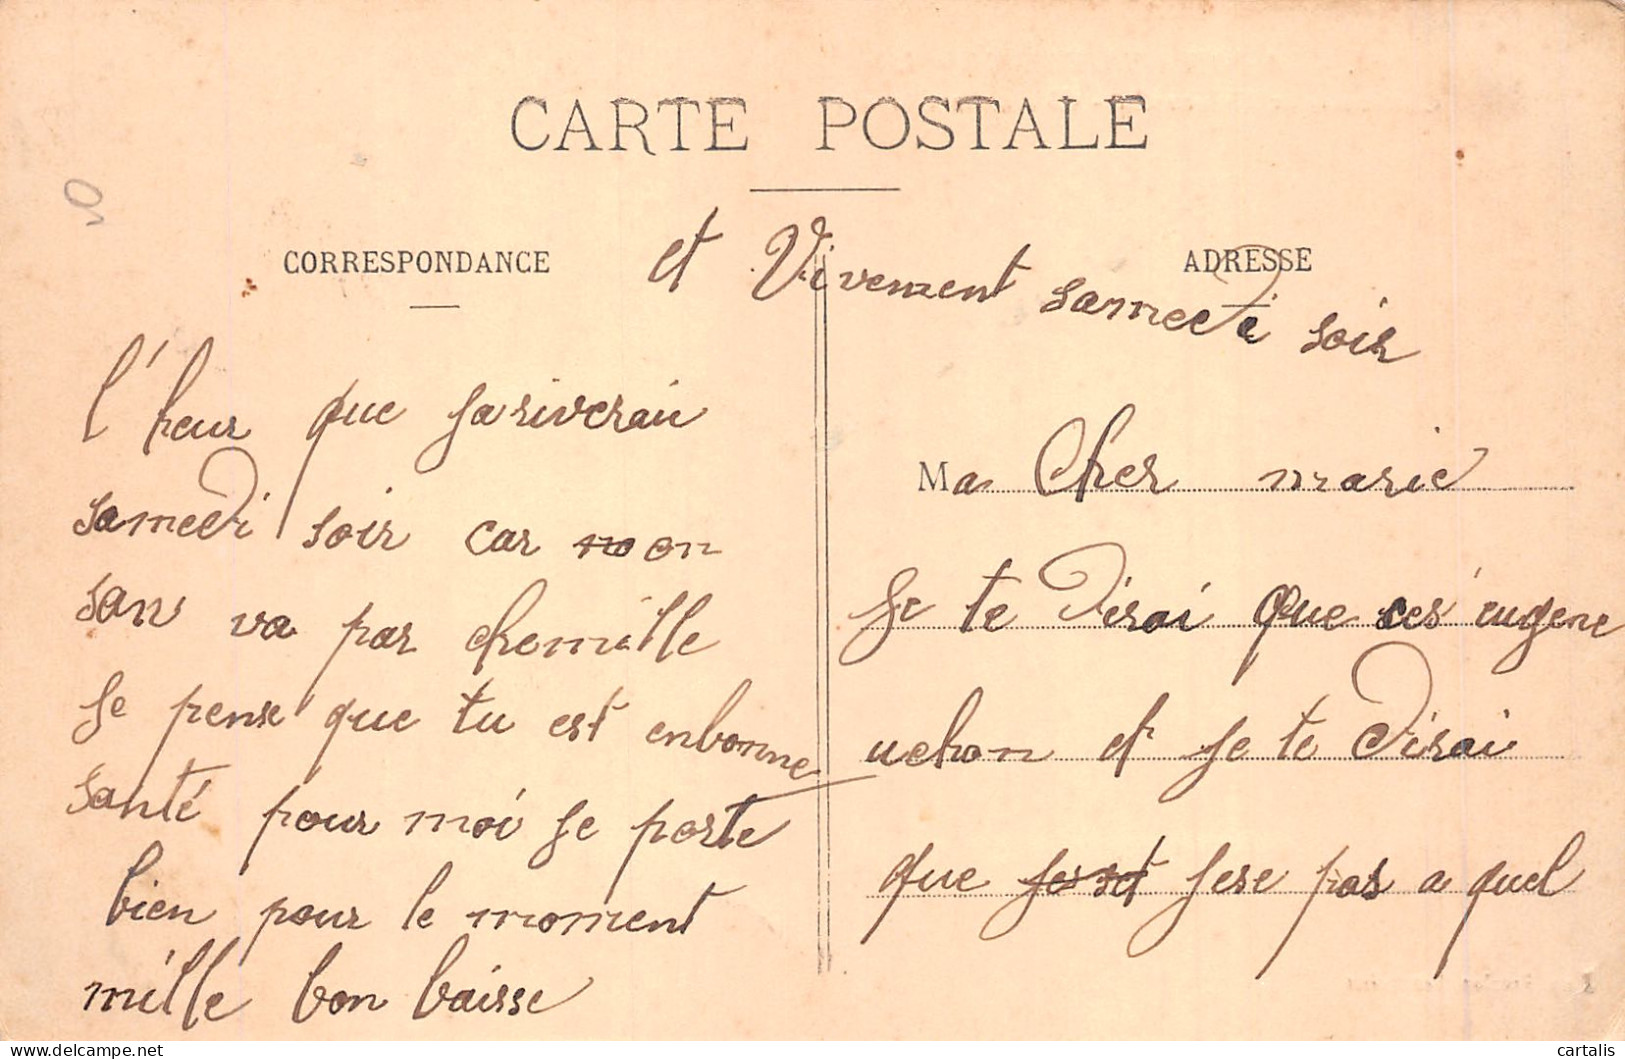 CARTE POSTALE
CORRESPONDANCE
ADRESSE
Ma Cher marie
Je te dirai que ces eugene
uchon et je te dirai
que jese pas a quel
l'heur que jariverai
samedi soir car on
sans va par chemille
je pense que tu est enbonne
santé pour moi je porte
bien pour le moment
mille bon baisse
et Vivement samedi soir
cartalis